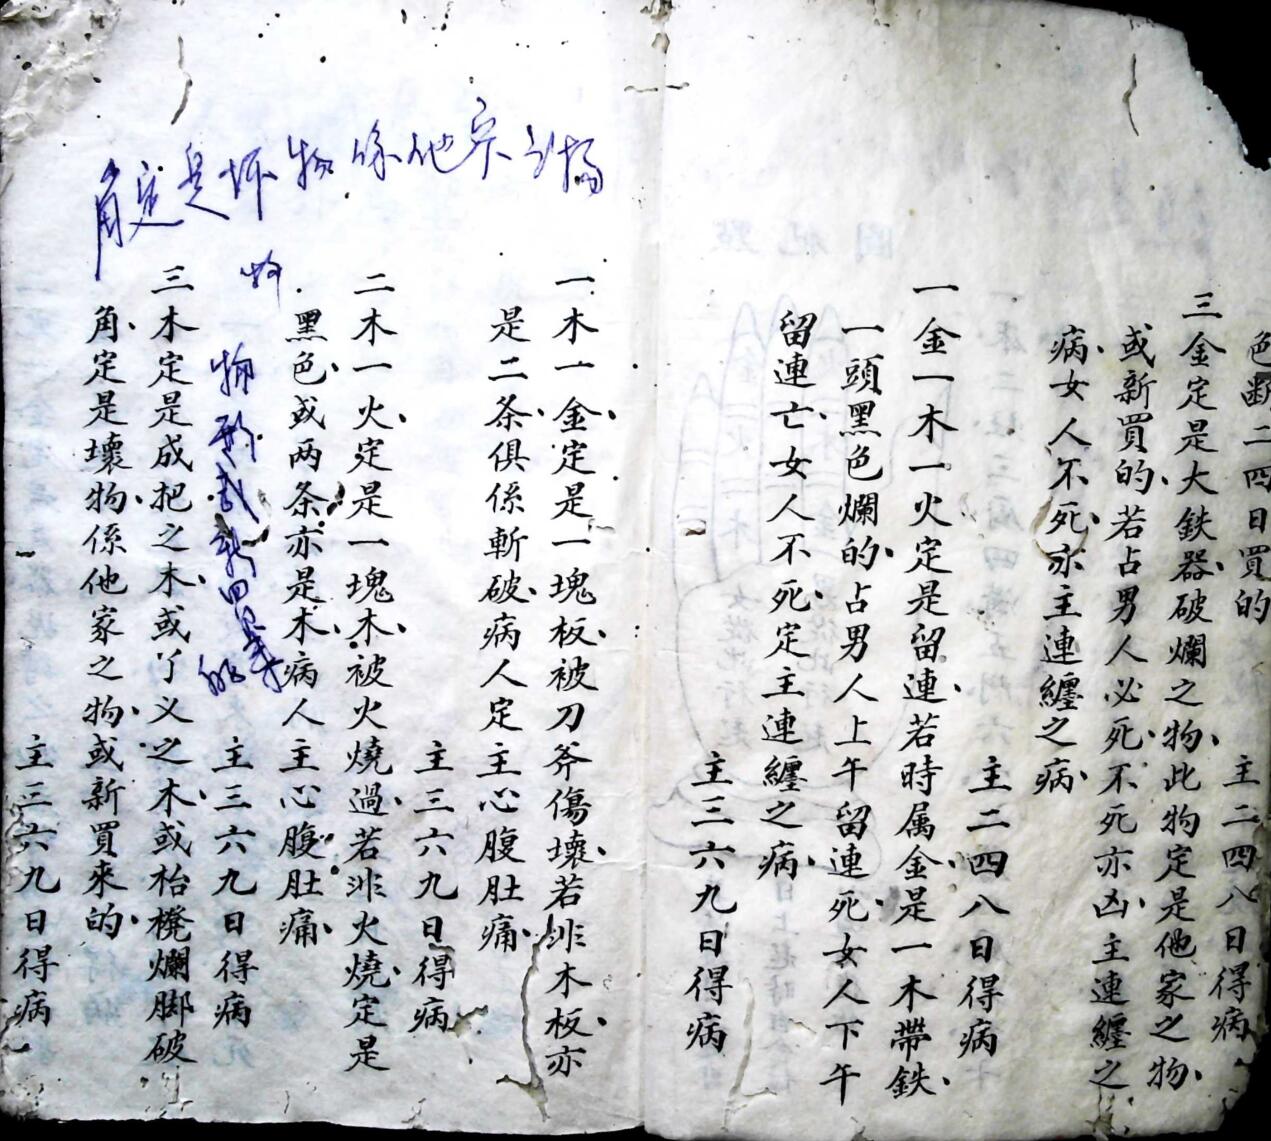 色断二四日買的
主二四八日得病
三金定是大鉄器破爛之物此物定是他家之物
或新買的若占男人必死不死亦凶主連纏之
病女人不死亦主連纏之病
主二四八日得病
一金一木一火定是留連若時属金是一木帶鉄
一頭黑色爛的占男人上午留連死女人下午
留連亡女人不死定主連纏之病
主三六九日得病
一木一金定是一塊板被刀斧傷壞若非木板亦
是二条俱係斬破病人定主心腹肚痛
主三六九日得病
二木一火定是一塊木被火燒過若非火燒定是
黑色或两条亦是木病人主心腹肚痛
主三六九日得病
三木定是成把之木或丫义之木或枱櫈爛脚破
角定是壞物係他家之物或新買來的
主三六九日得病
角定是坏物係他家之物
物
物形或新買來的